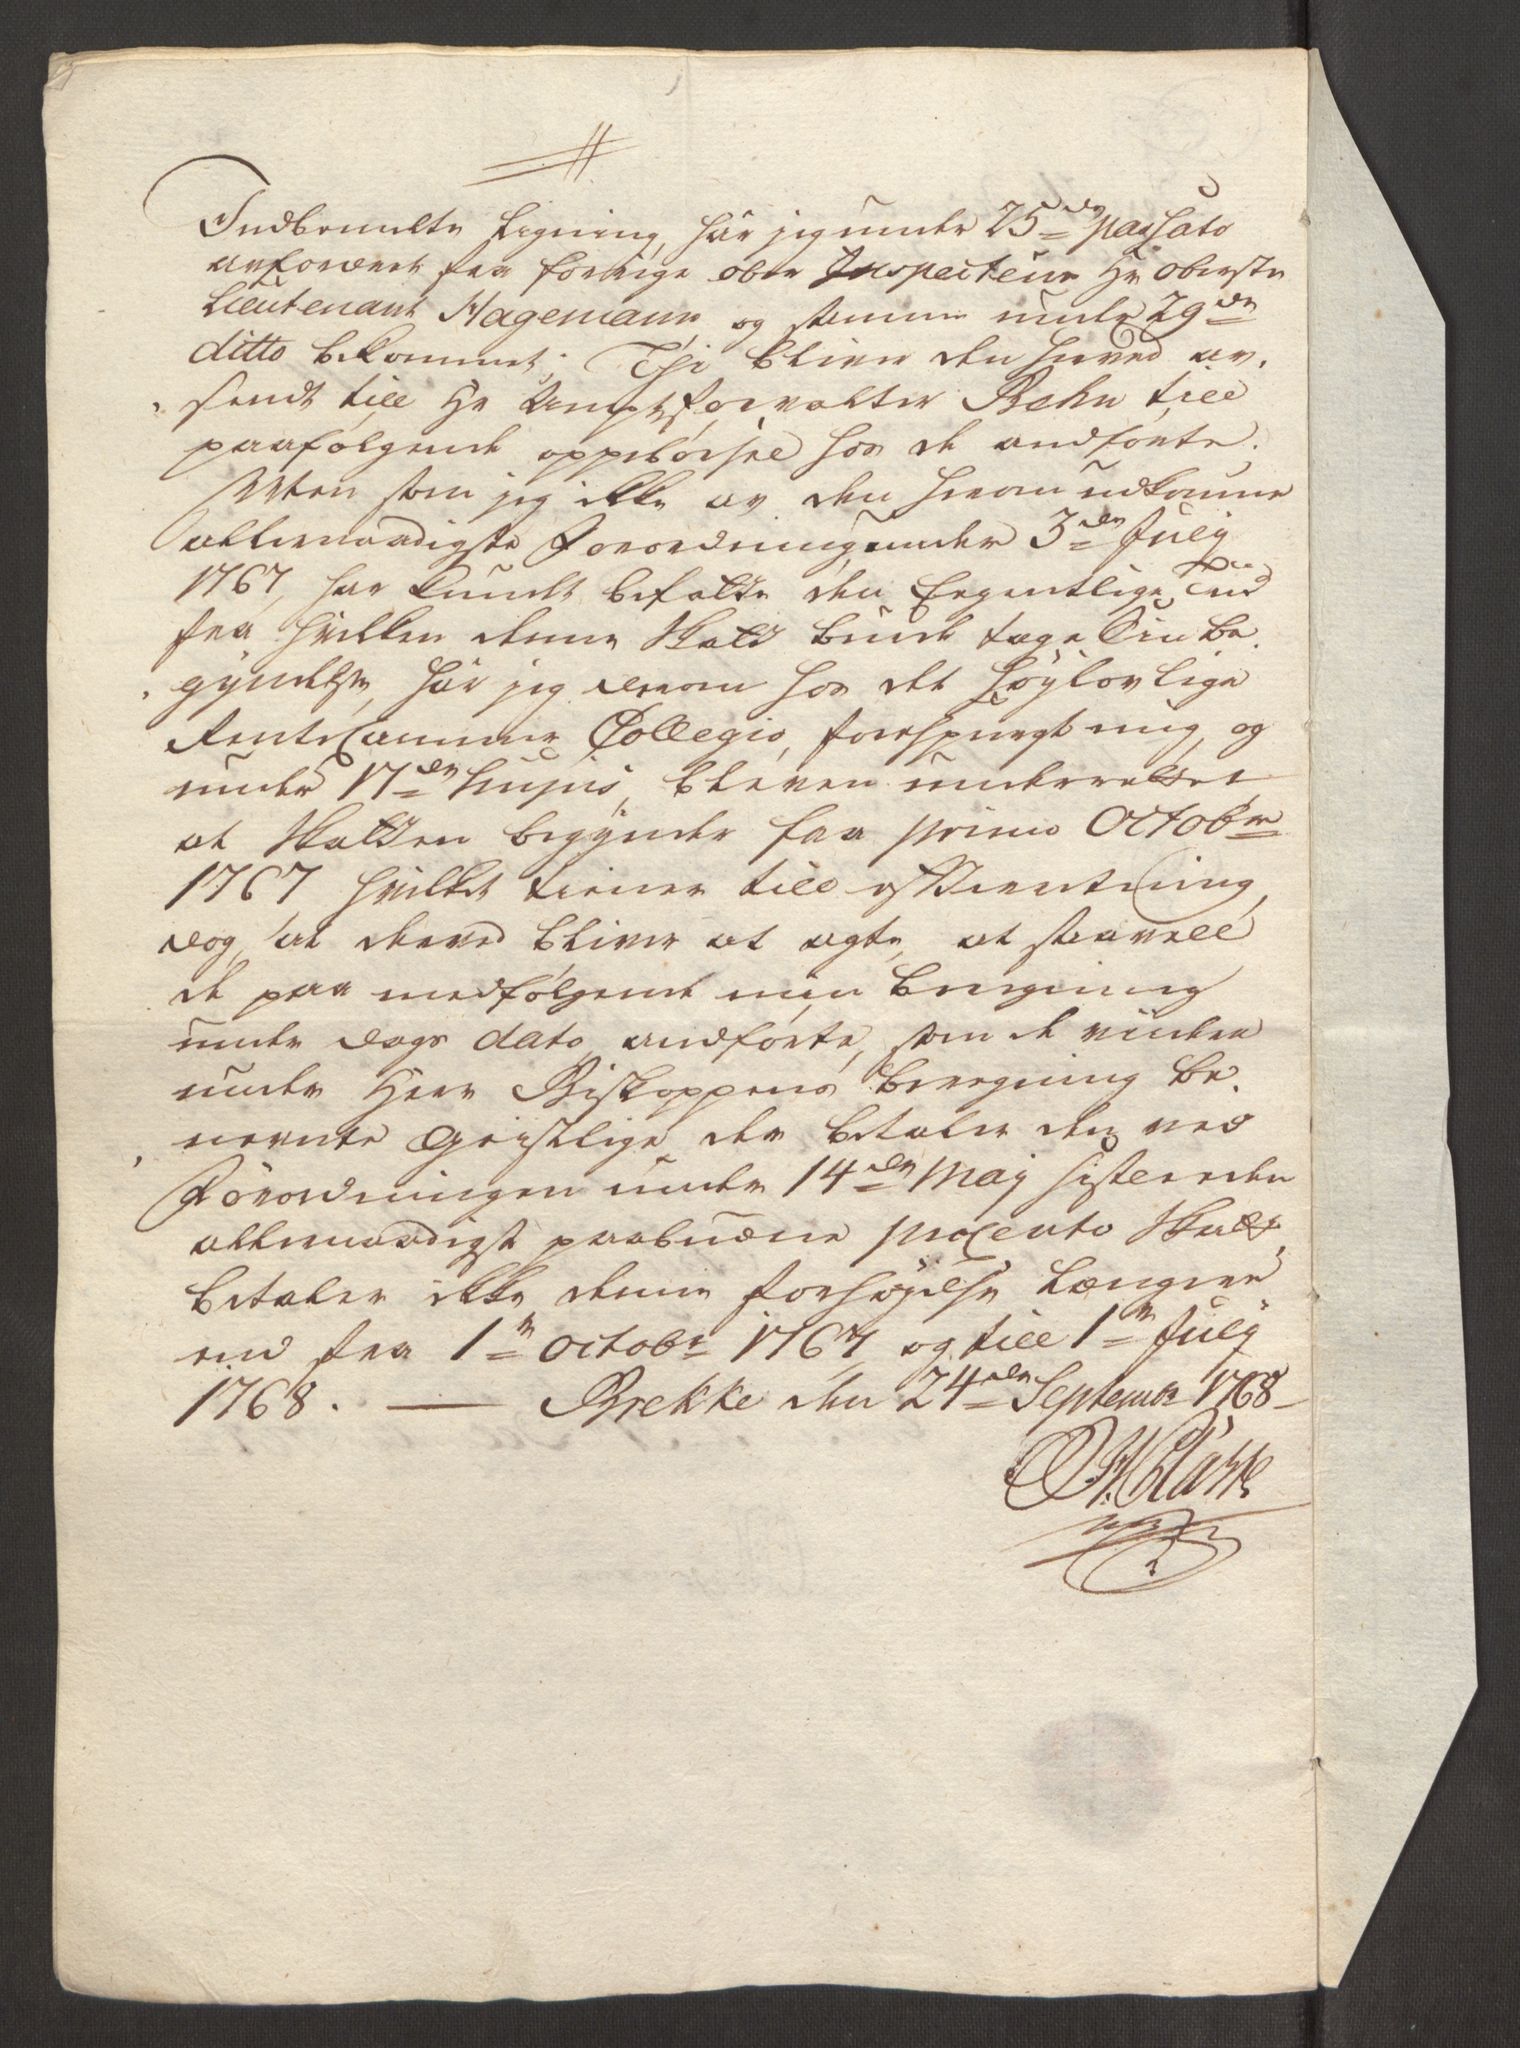 Indbemelte Ligning, har jeg under 25de passato
avfordret fra forrige ober Inspecteur Hr oberste
Lieutenant Hagemann og samme under 29de
ditto bekommet; Thi bliver den herved av-
sendt till Hr Amptsforvalter Behn till
paafølgende oppebørsel hos de andførte.
Men som jeg ikke av den herom udkomne
allernaadigste Forordning, under 3de July
1767, har kundt befatte den Egentlige Tiid
fra hvilken denne Skatt burde tage Sin be-
gyndelse, har jeg derom hos det høylovlige
RenteCammer Collegio, forespurgt mig, og
under 17de hujus, bleven underrettet
at Skatten begynder fra primo Octobr
1767, hvilket tiener till effterretning,
dog, at derved bliver at agte, at saavell
de paa medfølgende min Beregning
under dags dato andførte, som de
under Herr Biskoppens beregning be-
nevnte Geistlige, der betaler den ved
Forordningen under 14de May sistleeden
allernaadigst paabudene proCento Skatt,
betaler ikke denne forhøyelse længere
end fra 1te Octobr 1767, og till 1te July
1768. — Brekke den 24de Septembr 1768